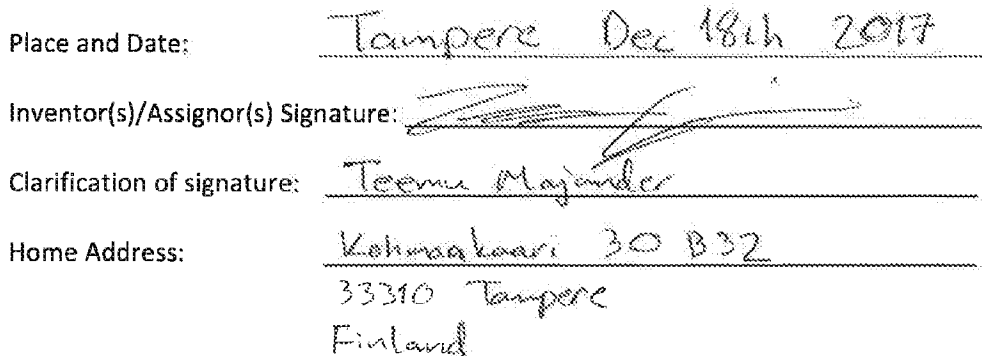 Place and Date: Tampere Dec 18th 2017
Inventor(s)/Assignor(s) Signature:
Clarification of signature: Teemu Majander
Home Address: Kohmankaari 30 B32
33310 Tampere
Finland